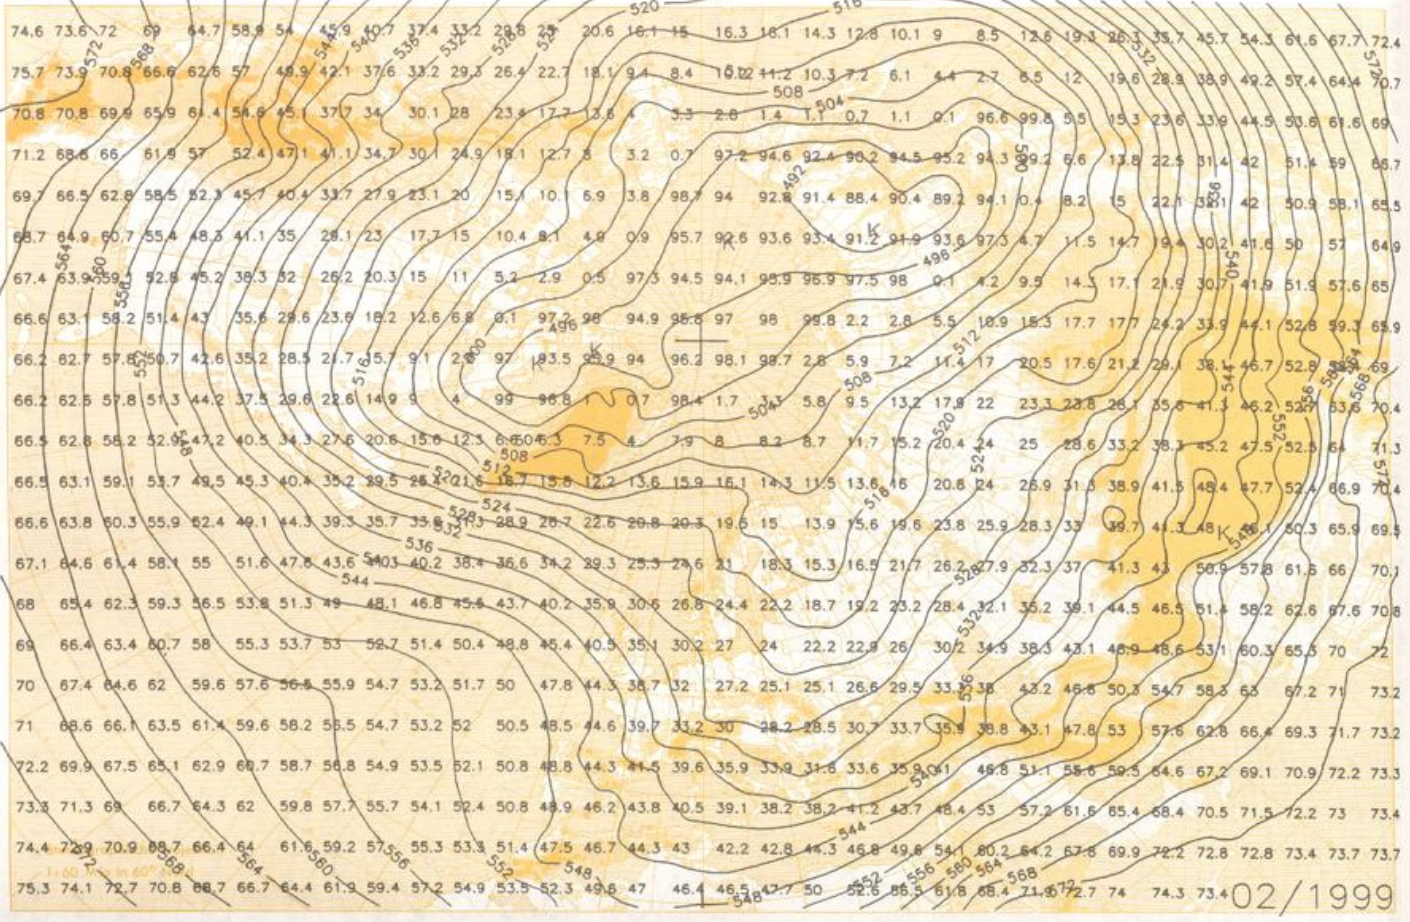 520 516
74.6 73.6 72 69 64.7 58.9 54 45.9 40.7 37.4 33.2 29.8 25 20.6 16.1 15 16.3 16.1 14.3 12.8 10.1 9 8.5 12.6 19.3 26.3 35.7 45.7 54.3 61.6 67.7 72.4
572 568 544 540 536 532 528 524 532 572
75.7 73.9 70.8 66.6 62.6 57 49.9 42.1 37.6 33.2 29.3 26.4 22.7 18.1 9.4 8.4 10.2 11.2 10.3 7.2 6.1 4.4 2.7 6.5 12 19.6 28.9 38.9 49.2 57.4 64.4 70.7
512 508 504
70.8 70.8 69.9 65.9 61.4 54.6 45.1 37.7 34 30.1 28 23.4 17.7 13.6 4 3.3 2.8 1.4 1.1 0.7 1.1 0.1 96.6 99.8 5.5 15.3 23.6 33.9 44.5 53.6 61.6 69
71.2 68.6 66 61.9 57 52.4 47.1 41.1 34.7 30.1 24.9 18.1 12.7 8 3.2 0.7 97.2 94.6 92.4 90.2 94.5 95.2 94.3 99.2 6.6 13.8 22.5 31.4 42 51.4 59 66.7
492 500 556
69.7 66.5 62.8 58.5 52.3 45.7 40.4 33.7 27.9 23.1 20 15.1 10.1 6.9 3.8 98.7 94 92.8 91.4 88.4 90.4 89.2 94.1 0.4 8.2 15 22.1 42 50.9 58.1 65.5
68.7 64.9 60.7 55.4 48.3 41.1 35 28.1 23 17.7 15 10.4 8.1 4.9 0.9 95.7 92.6 93.6 93.4 91.2 91.9 93.6 97.3 4.7 11.5 14.7 19.4 30.2 41.6 50 57 64.9
K K
564 560 556 496 540
67.4 63.9 59.1 52.8 45.2 38.3 32 26.2 20.3 15 11 5.2 2.9 0.5 97.3 94.5 94.1 95.9 96.9 97.5 98 0.1 4.2 9.5 14.3 17.1 21.9 30.7 41.9 51.9 57.6 65
66.6 63.1 58.2 51.4 43 35.6 28.6 23.6 18.2 12.6 6.8 0.1 97.2 98 94.9 95.8 97 98 99.8 2.2 2.8 5.5 10.9 15.3 17.7 17.7 24.2 33.9 44.1 52.8 59.3 65.9
496 500 512
66.2 62.7 57.8 50.7 42.6 35.2 28.5 21.7 15.7 9.1 97 93.5 95.9 94 96.2 98.1 99.7 2.8 5.9 7.2 11.4 17 20.5 17.6 21.2 29.1 38.1 46.7 52.8 69
K K
552 516 508 544 564 568
66.2 62.6 57.8 51.3 44.2 37.5 29.6 22.6 14.9 9 4 99 96.8 1 0.7 98.4 1.7 3.3 5.8 9.5 13.2 17.9 22 23.3 23.8 28.1 35.6 41.3 46.2 63.6 70.4
504 520 556 552
66.5 62.8 58.2 52.9 47.2 40.5 34.3 27.6 20.6 15.6 12.3 6.6 504 6.3 7.5 4 7.9 8 8.2 8.7 11.7 15.2 20.4 24 25 28.6 33.2 38.3 45.2 47.5 52.5 64 71.3
548 508 512 520 524 572
66.5 63.1 59.1 53.7 49.5 45.3 40.4 35.2 29.5 21.6 16.7 15.8 12.2 13.6 15.9 16.1 14.3 11.5 13.6 16 20.8 24 26.9 31.3 38.9 41.5 48.4 47.7 52.4 66.9 70.4
524 516
66.6 63.8 60.3 55.9 52.4 49.1 44.3 39.3 35.7 28.9 26.7 22.6 20.8 20.3 19.5 15 13.9 15.6 19.6 23.8 25.9 28.3 33 39.7 41.3 48 50.3 65.9 69.5
528 532 536 540 K 548
67.1 64.6 61.4 58.1 55 51.6 47.6 43.6 40.2 38.4 36.6 34.2 29.3 25.3 24.6 21 18.3 15.3 16.5 21.7 26.2 27.9 32.3 37 41.3 43 50.9 57.8 61.6 66 70.1
544 528
68 65.4 62.3 59.3 56.5 53.8 51.3 49 48.1 46.8 45.6 43.7 40.2 35.9 30.6 26.8 24.4 22.2 18.7 19.2 23.2 28.4 32.1 35.2 39.1 44.5 46.5 51.4 58.2 62.6 67.6 70.8
532
69 66.4 63.4 60.7 58 55.3 53.7 53 52.7 51.4 50.4 48.8 45.4 40.5 35.1 30.2 27 24 22.2 22.9 26 30.2 34.9 38.3 43.1 48.9 48.6 53.1 60.3 65.3 70 72
70 67.4 64.6 62 59.6 57.6 56.5 55.9 54.7 53.2 51.7 50 47.8 44.3 38.7 32 27.2 25.1 25.1 26.6 29.5 33.3 38 43.2 46.8 50.3 54.7 58.3 63 67.2 71 73.2
536
71 68.6 66.1 63.5 61.4 59.6 58.2 56.5 54.7 53.2 52 50.5 48.5 44.6 39.7 33.2 30 28.2 28.5 30.7 33.7 35.9 38.8 43.1 47.8 53 57.6 62.8 66.4 69.3 71.7 73.2
72.2 69.9 67.5 65.1 62.9 60.7 58.7 56.8 54.9 53.5 52.1 50.8 48.8 44.3 41.5 39.6 35.9 33.9 31.6 33.6 35.9 41 46.8 51.1 55.6 59.5 64.6 67.2 69.1 70.9 72.2 73.3
540
73.3 71.3 69 66.7 64.3 62 59.8 57.7 55.7 54.1 52.4 50.8 48.9 46.2 43.8 40.5 39.1 38.2 38.2 41.2 43.7 48.4 53 57.2 61.6 65.4 68.4 70.5 71.5 72.2 73 73.4
544
74.4 72.9 70.9 68.7 66.4 64 61.6 59.2 57 55.3 53.3 51.4 47.5 46.7 44.3 43 42.2 42.8 44.3 46.8 49.6 54.1 60.2 64.2 67.8 69.9 72.2 72.8 72.8 73.4 73.7 73.7
572 568 564 560 556 552 548 552 556 560 564 568
75.3 74.1 72.7 70.8 68.7 66.7 64.4 61.9 59.4 57.2 54.9 53.5 52.3 49.6 47 46.4 46.5 47.7 50 52.6 56.5 61.8 68.4 71.9 572 72.7 74 74.3 73.4
548
02/1999